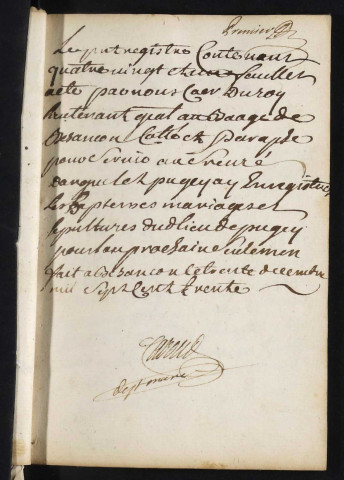 Premier
Le pnt registre Contenant
quatre vingt feuillet
a été par nous Con.er du roy
lieutenant gnal au bailliage de
Besançon Cotté et Paraphé
pour Servir au Sr curé
pugey a y Enregistrer
les Baptesmes mariages et
Sepultures dud lieu de pugey
pour l'an prochaine seulemen
fait a Besancon le trente decembre
mil Sept Cent trente